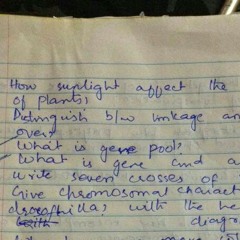 How sunlight affect the
of plants?
Distinguish b/w linkage an
over?
What is gene pool?
What is gene and a
Write seven crosses of
Give chromosomal charact
drosophilla? with the he
diagr